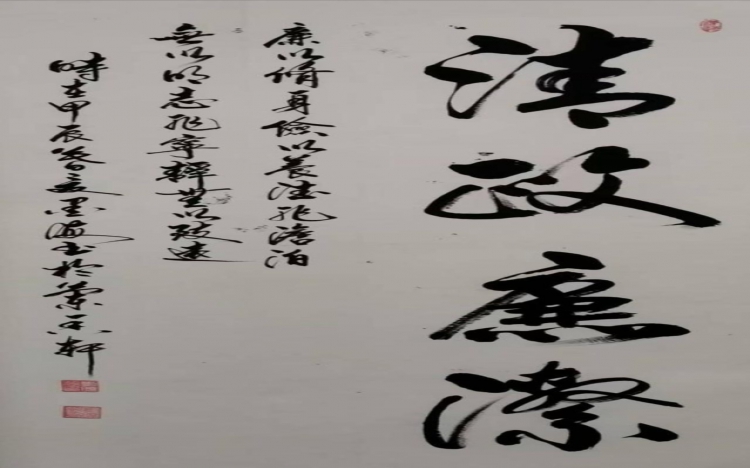 清政廉潔
廉以脩身儉以養德非澹泊
無以明志非寧靜無以致遠
時在甲辰墨海书於軒